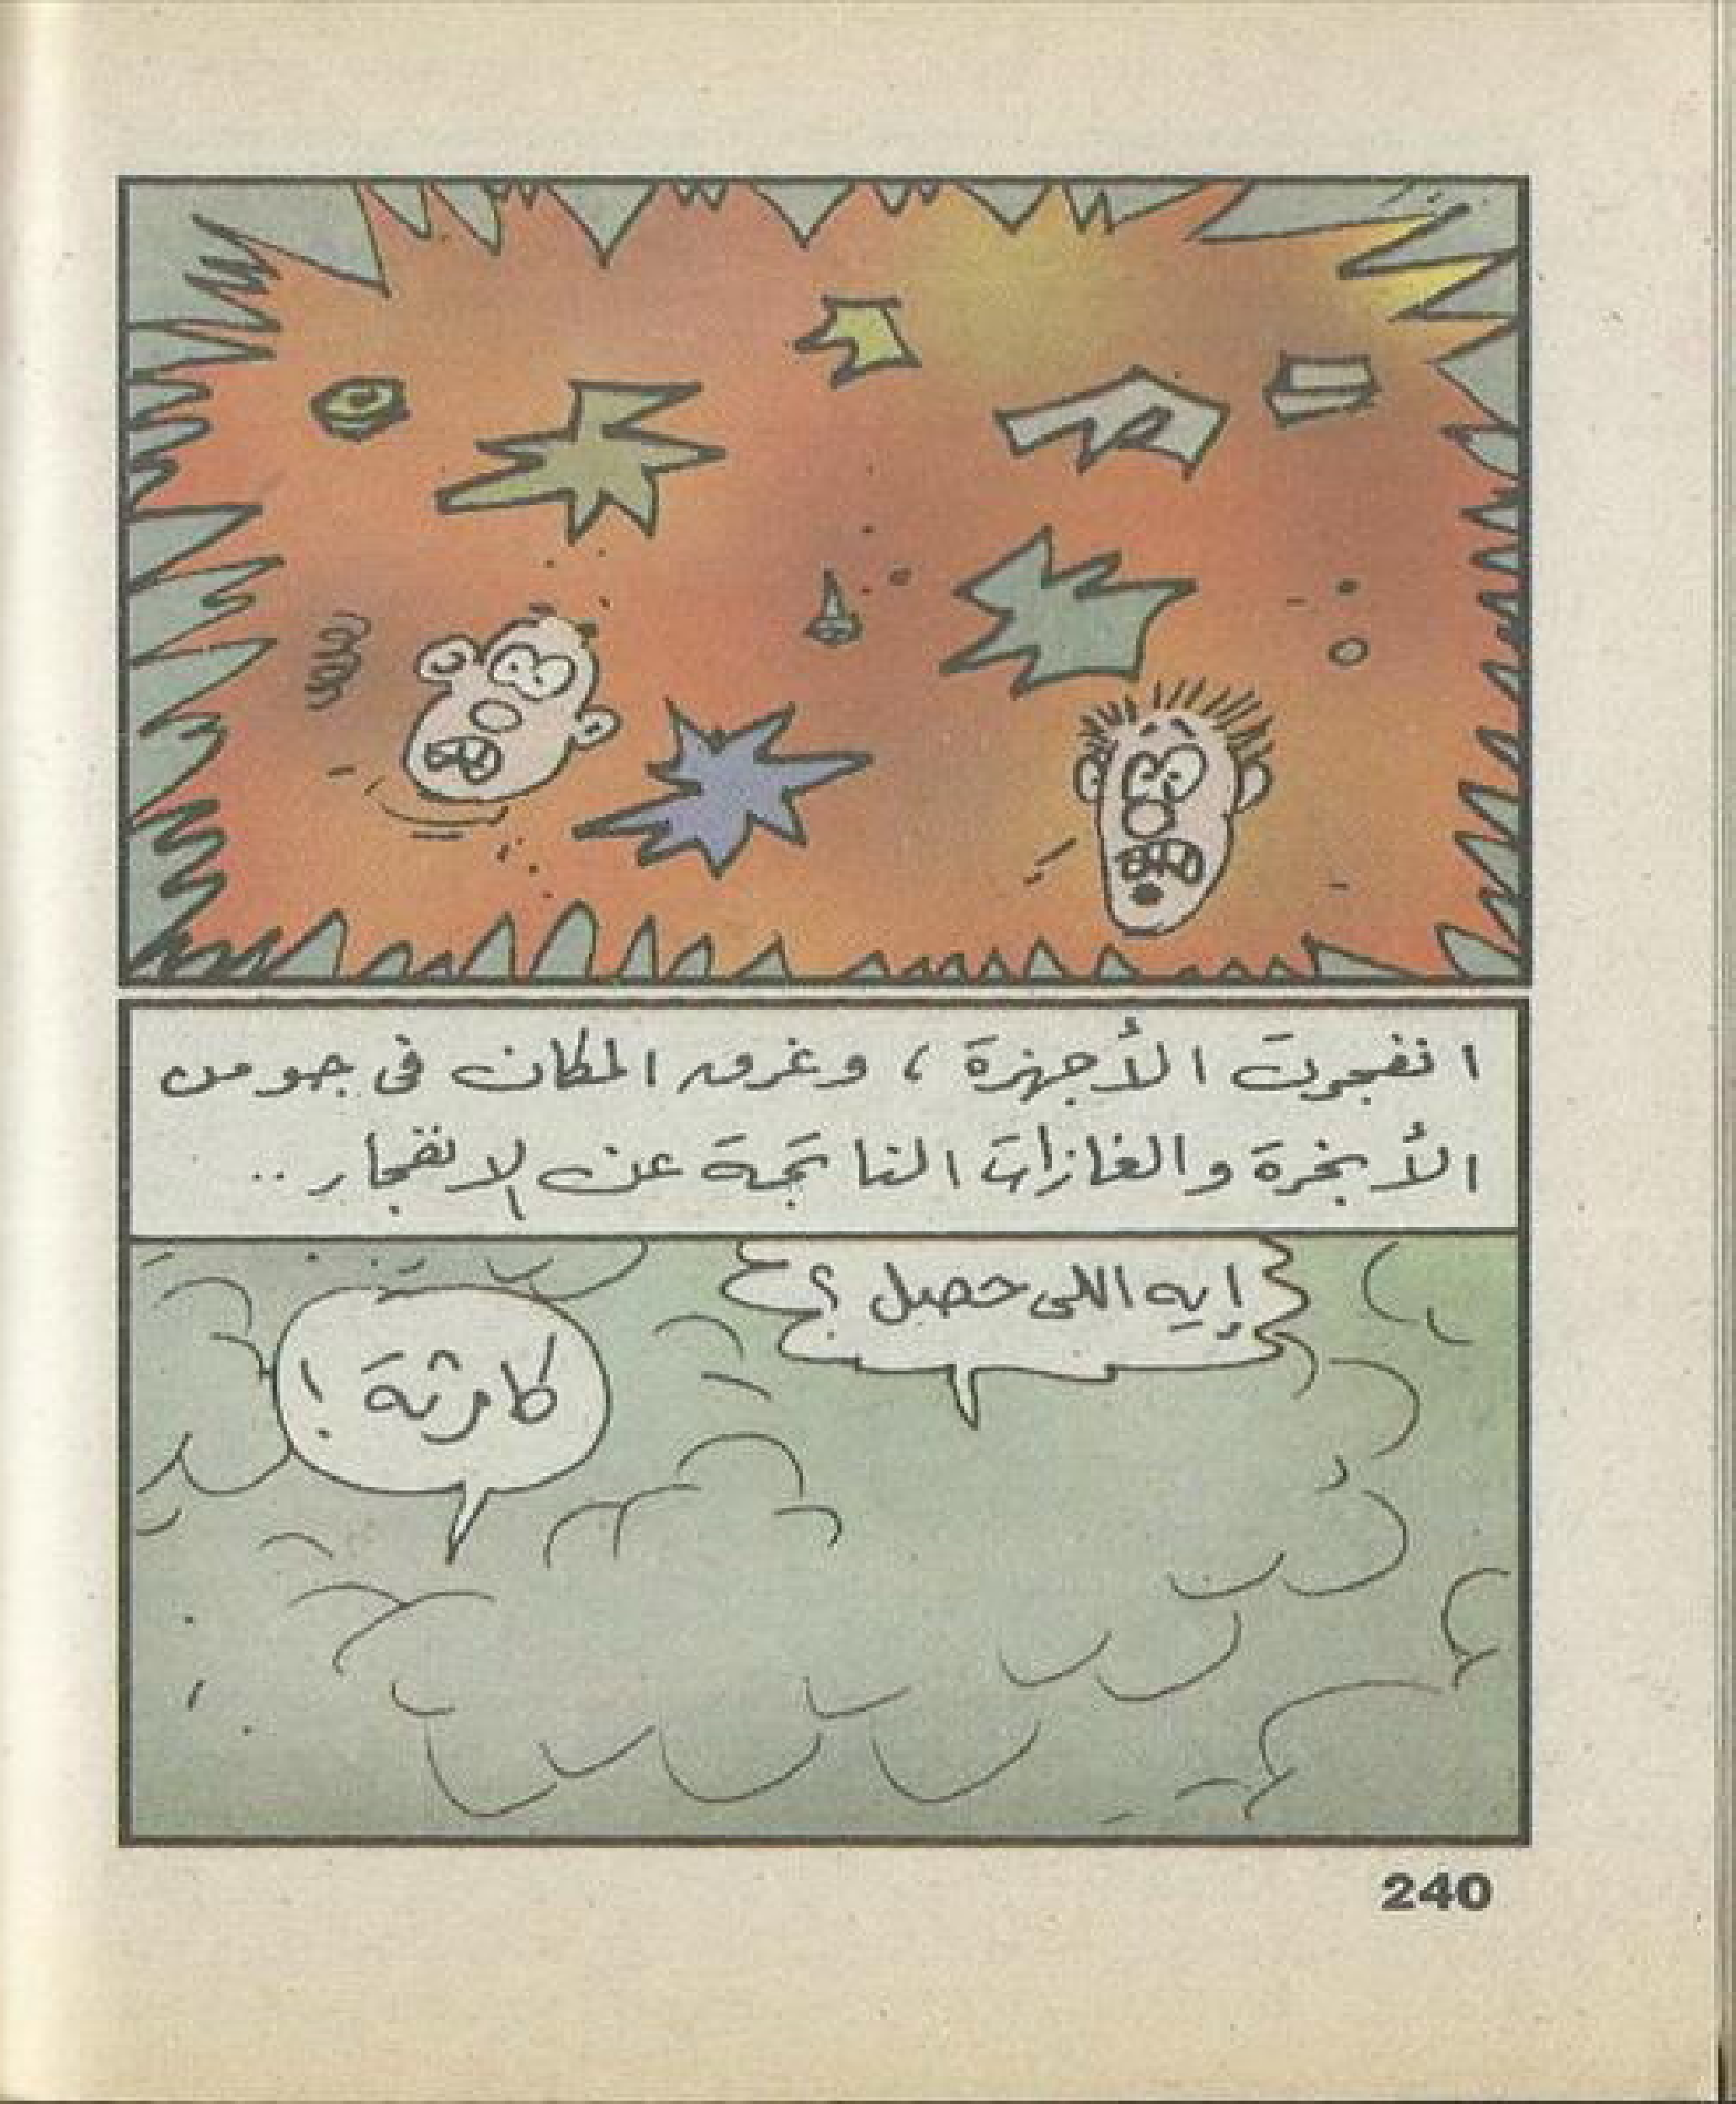 انفجرت الأجهزة ، وغرق المكان فى جو من
الأبخرة والغازات الناتجة عن الإنفجار ..
إيه اللى حصل ؟
كارثة !
240